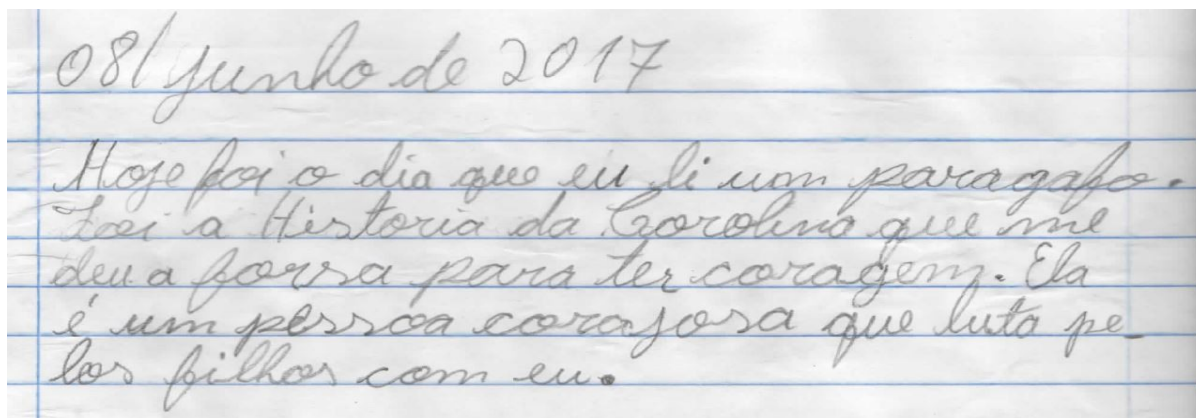 08/Junho de 2017
Hoje foi o dia que eu li um paragafo.
Foi a Historia da Carolina que me
deu a forsa para ter coragem. Ela
é um pessoa corajosa que luta pe_
los filhos com eu.